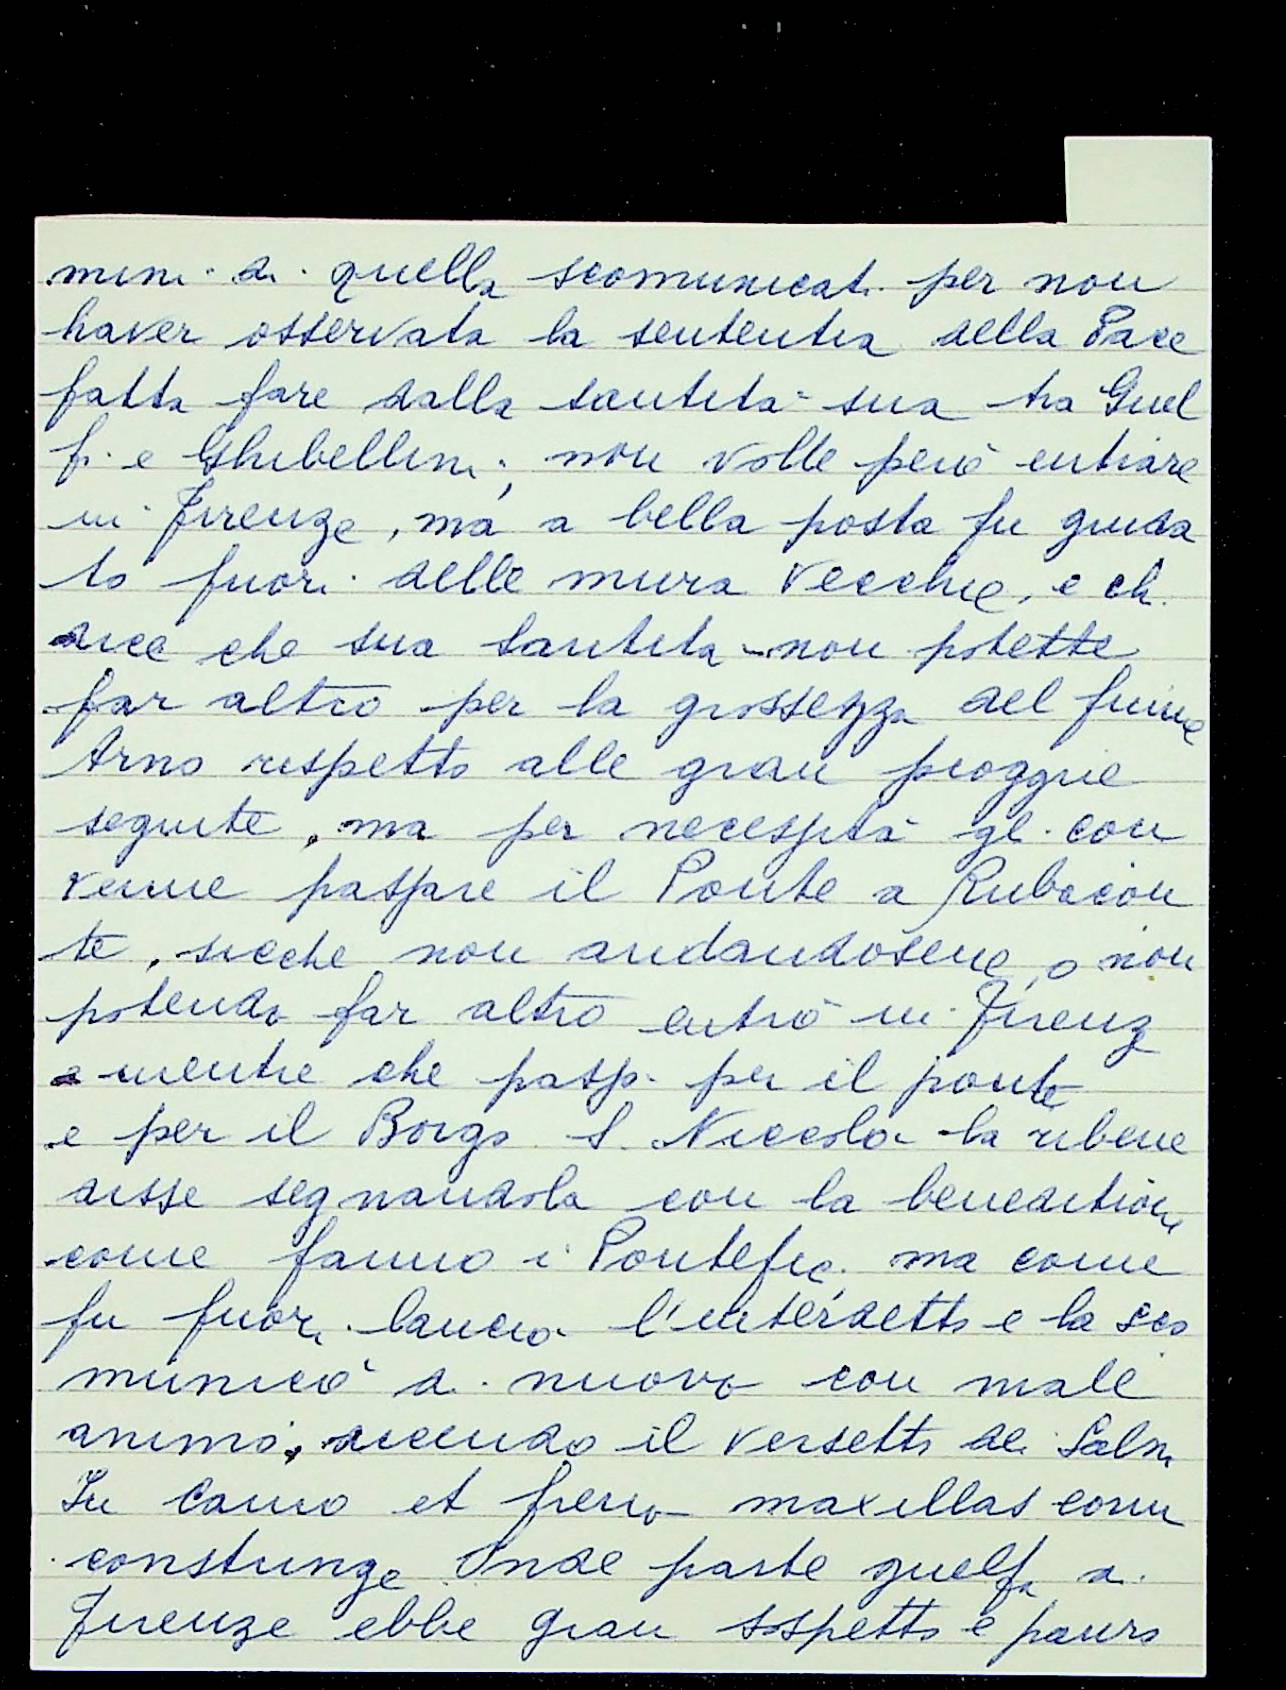 mini di quella scomunicati per non
haver osservata la sententia della Pace
fatta fare dalla santità sua tra Guel
fi e Ghibellini; non volle però entrare
in Firenze, ma a bella posta fu guida
to fuori delle mura vecchie, e chi
dice che sua Santità non potette
far altro per la grossezza del fiume
Arno rispetto alle gran pioggie
seguite, ma per necessità gli con
venne passare il Ponte a Rubacon
te, sicche non andandosene, o non
potendo far altro entrò in Firenz
e mentre che passò per il ponte
e per il Borgo S. Niccolò la ribene
disse segnandola con la beneditione
come fanno i Pontefici, ma come
fu fuori lanciò l'interdetto e la sco
municò di nuovo con male
animo, dicendo il versetto del Salmi
In Camo et freno maxillas eorum
constringe Onde parte guelfa di
Firenze ebbe gran sospetto e paura